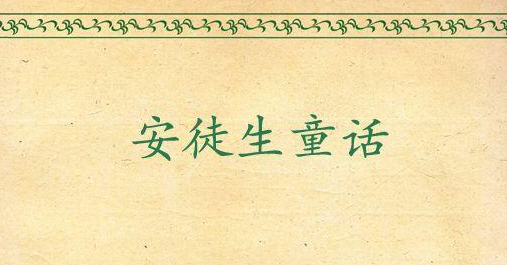 安徒生童话